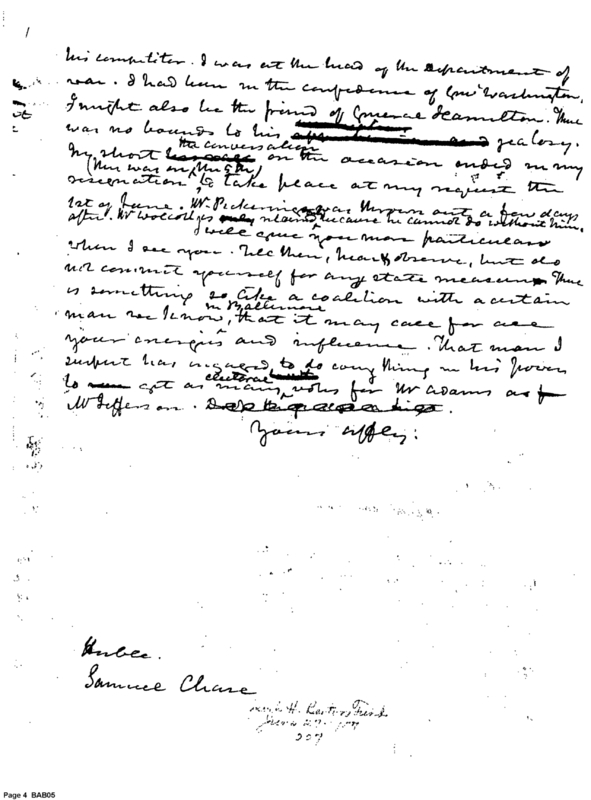 1
his competitor. I was at the head of the department of
war. I had been in the confidence of Genl Washington.
I might also be the friend of General Hamilton. There
was no bounds to his jealosy.
the conversation
My short on the occasion ended in my
(this was on the 6th)
resignation, to take place at my request the
1st of June. Mr. Pickering was thrown out a few days
after. Mr Wolcott is only retained because he cannot do without him.
I will give you more particulars
when I see you. Till then, hear & observe, but do
not commit yourself for any state measure. There
is something so like a coalition with a certain
in Baltimore
man we know, that it may call for all
your energies and influence. That man I
suspect has engaged to do every thing in his power
electoral
to get as many votes for Mr Adams as for
Mr Jefferson.
Yours affly:
Honble.
Samuel Chase
207
Page 4 BAB05